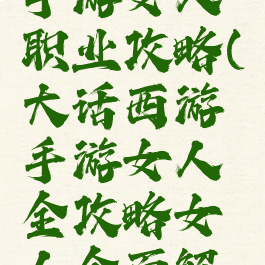 手游女人
职业攻略(
大话西游
手游女人
全攻略女
人全面解